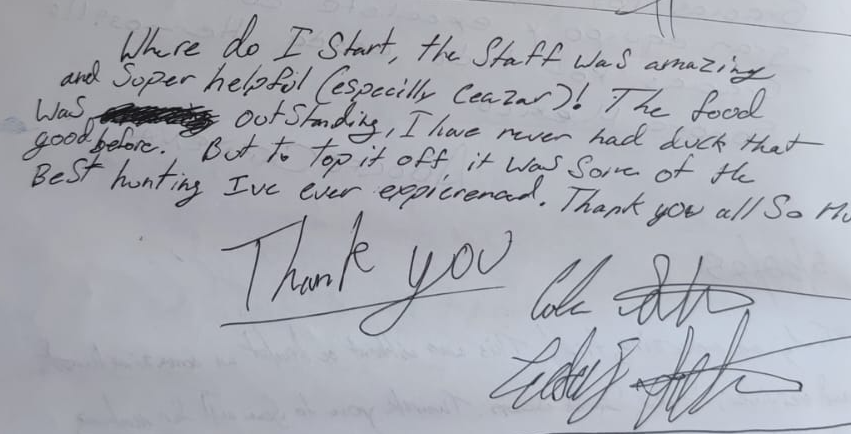 Where do I Start, the Staff was amazing
and Super helpful (especilly Ceazar)! The food
was outStanding, I have never had duck that
good before. But to top it off, it was Some of the
Best hunting Ive ever expicrenced. Thank you all So
Thank you